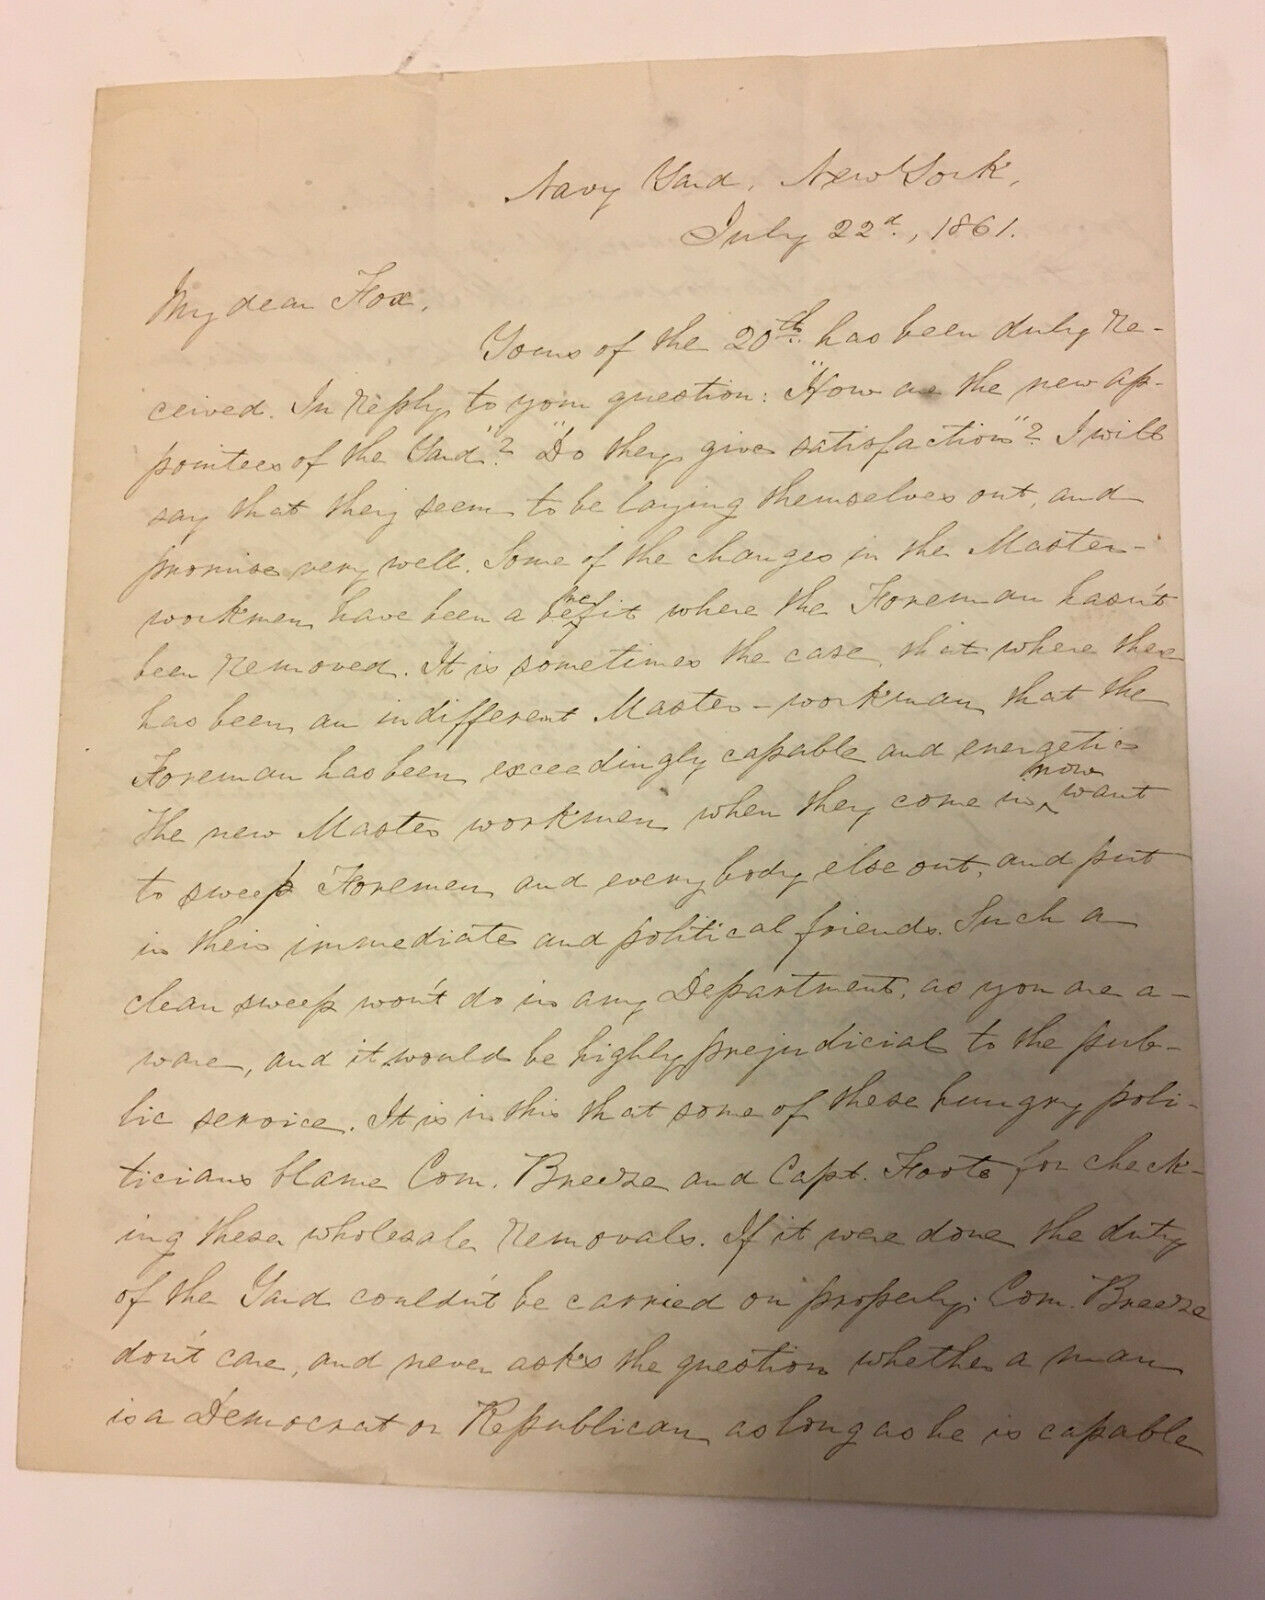 Navy Yard, New York,
July 22d., 1861.
My dear Fox,
Yours of the 20th. has been duly re-
ceived. In reply to your question: "How are the new ap-
pointees of the Yard"? "Do they give satisfaction"? I will
say that they seem to be laying themselves out, and
promise very well. Some of the changes in the Master-
workmen have been a benefit where the Foreman hasn't
been removed. It is sometimes the case, that where there
has been an indifferent Master-workman that the
Foreman has been exceedingly capable and energetic
The new Master workmen when they come in now want
to sweep Foremen and everybody else out, and put
in their immediate and political friends. Such a
clean sweep won't do in any Department, as you are a-
ware, and it would be highly prejudicial to the pub-
lic service. It is in this that some of these hungry poli-
ticians blame Com. Breeze and Capt. Foote for check-
ing these wholesale removals. If it were done the duty
of the Yard couldn't be carried on properly. Com. Breeze
don't care, and never asks the question whether a man
is a Democrat or Republican as long as he is capable